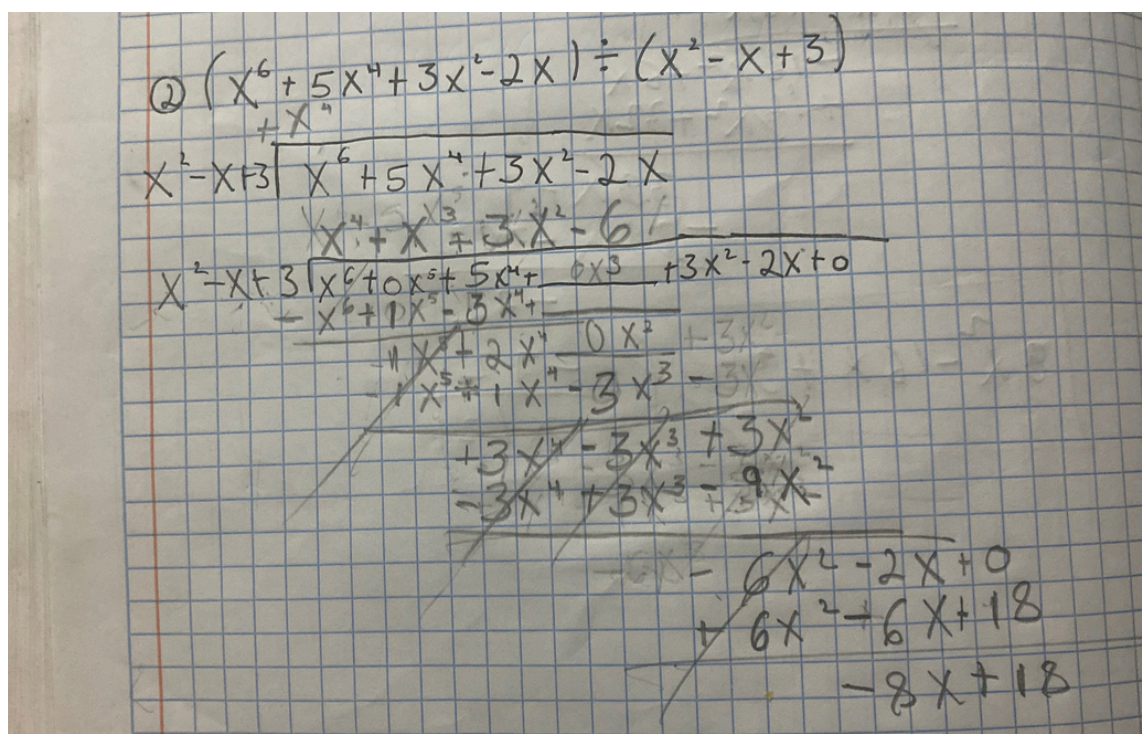 ② (x⁶ + 5x⁴ + 3x² - 2x) ÷ (x² - x + 3)
+ x⁴
x² - x + 3 | x⁶ + 5x⁴ + 3x² - 2x
x⁴ + x³ + 3x² - 6
x² - x + 3 | x⁶ + 0x⁵ + 5x⁴ + 0x³ + 3x² - 2x + 0
- x⁶ + 1x⁵ - 3x⁴ +
1x⁵ + 2x⁴ 0x² + 3x²
- 1x⁵ + 1x⁴ - 3x³
+3x⁴ - 3x³ + 3x²
-3x⁴ + 3x³ - 9x²
- 6x² - 2x + 0
+ 6x² - 6x + 18
- 8x + 18